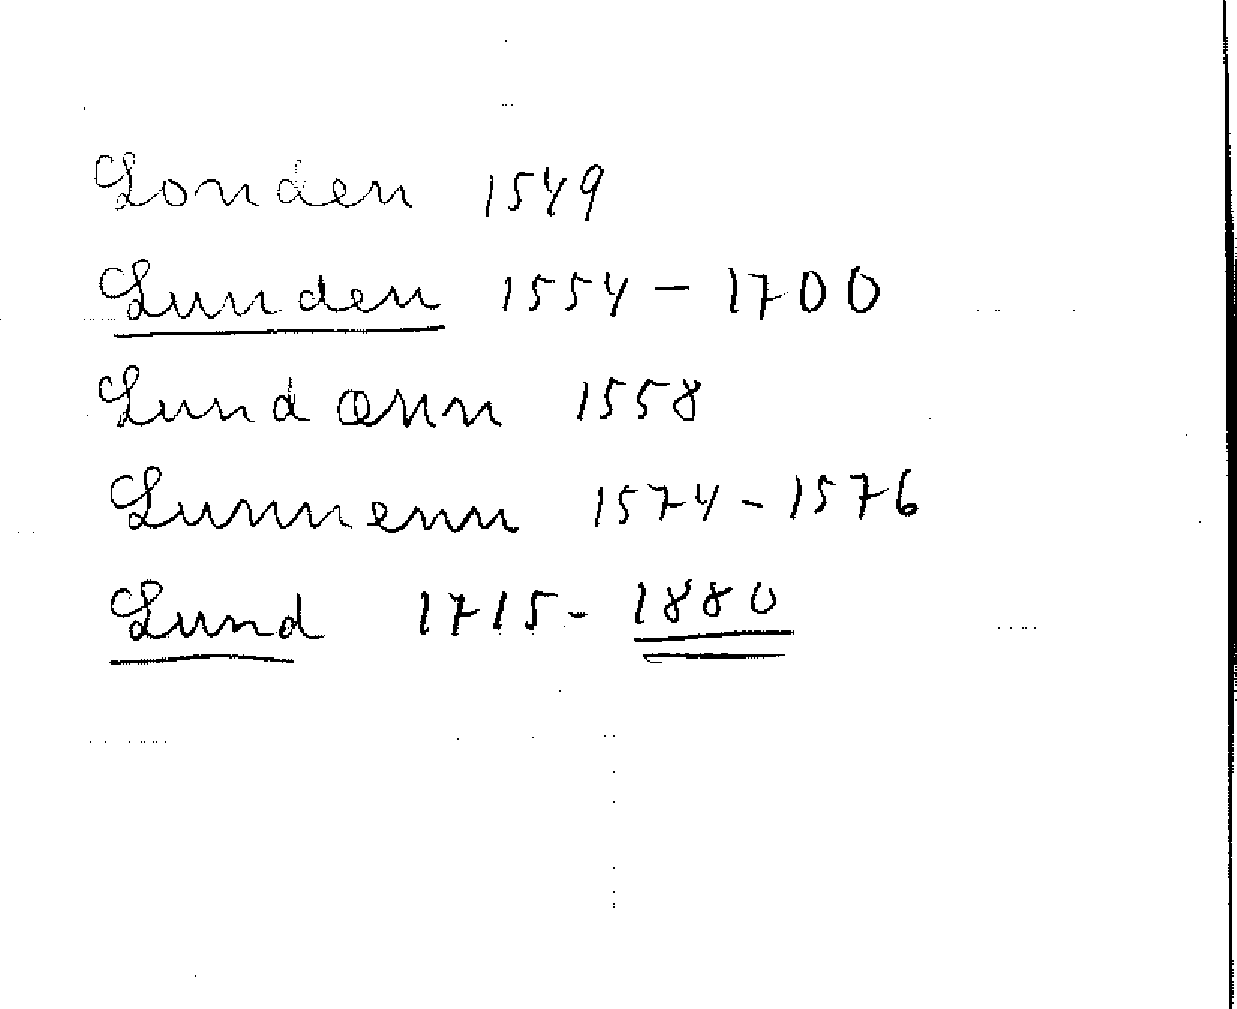 Londen 1549
Lunden 1554 - 1700
Lundonn 1558
Lunnenn 1574 - 1576
Lund 1715 - 1880